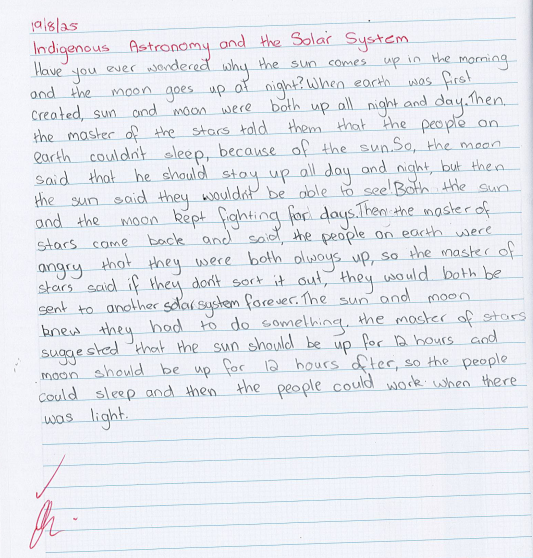 19/8/25
Indigenous Astronomy and the Solar System
Have you ever wondered why the sun comes up in the morning
and the moon goes up at night? When earth was first
created, sun and moon were both up all night and day. Then
the master of the stars told them that the people on
earth couldn't sleep, because of the sun. So, the moon
said that he should stay up all day and night, but then
the sun said they wouldn't be able to see! Both the sun
and the moon kept fighting for days. Then the master of
stars came back and said, the people on earth were
angry that they were both always up, so the master of
stars said if they don't sort it out, they would both be
sent to another solar system forever. The sun and moon
knew they had to do something. the master of stars
suggested that the sun should be up for 12 hours and
moon should be up for 12 hours after, so the people
could sleep and then the people could work when there
was light.